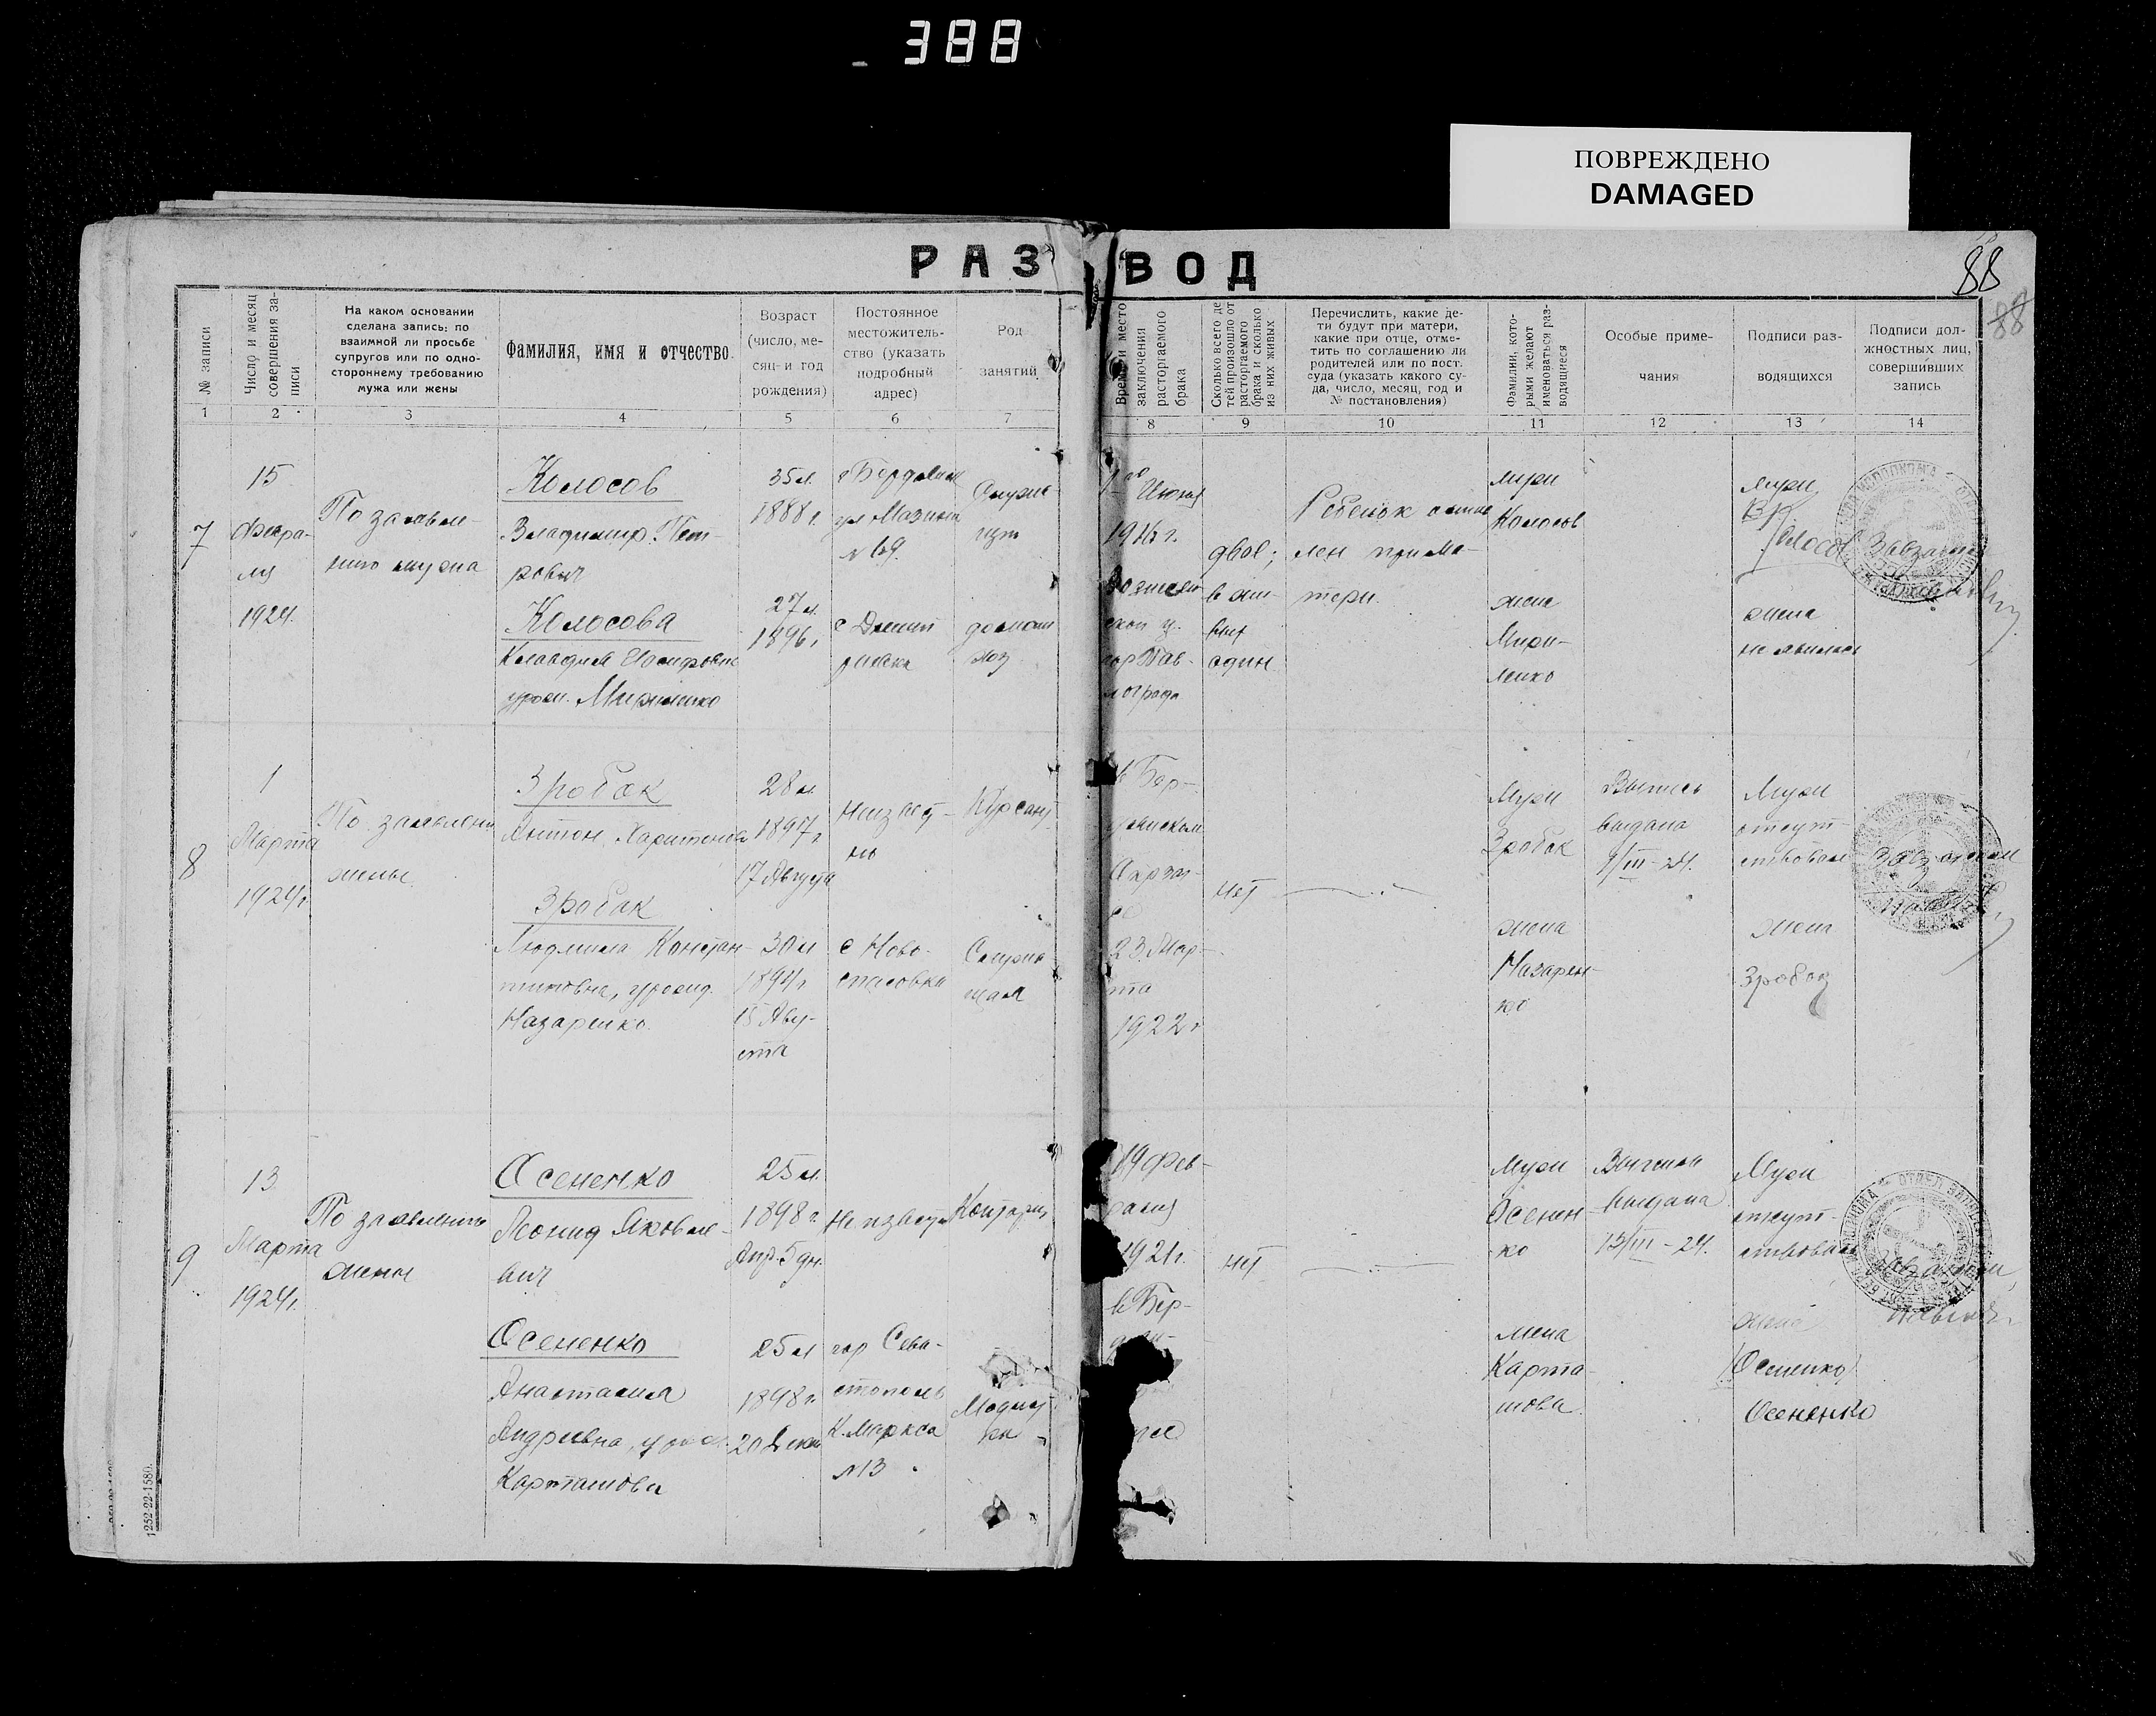 388
ПОВРЕЖДЕНО
DAMAGED
РАЗВОД
88
88
№ записи
Число и месяц совершения записи
На каком основании
сделана запись: по
взаимной ли просьбе
супругов или по одно-
стороннему требованию
мужа или жены
Фамилия, имя и отчество
Возраст
(число, ме-
сяц и год
рождения)
Постоянное
местожитель-
ство (указать
подробный
адрес)
Род
занятий
Время и место
заключения
расторгаемого
брака
Сколько всего де
тей произошло от
расторгаемого
брака и сколько
из них живых
Перечислить, какие де-
ти будут при матери,
какие при отце, отме-
тить по соглашению ли
родителей или по пост.
суда (указать какого су-
да, число, месяц, год и
№ постановления)
Фамилии, кото-
рыми желают
именоваться раз-
водящиеся
Особые приме-
чания
Подписи раз-
водящихся
Подписи дол-
жностных лиц,
совершивших
запись
1 2 3 4 5 6 7 8 9 10 11 12 13 14
7
15
Февра-
ля
1924.
По заявле-
нию мужа
Колосов
Владимир Пет-
рович
Колосова
Клавдия Иосифовна
урож. Мириненко
35 л.
1888 г.
27 л.
1896 г.
г Бердянск
ул Мазина
№ 69.
домаш
хоз
Июня
1916 г.
двое;
в жи-
вых
один
Ребенок остав
лен при ма-
тери.
муж
Колосов
жена
Мири-
ненко
муж
Колосов
жена
не явилась
8
1
Марта
1924 г.
По заявлению
жены.
Зробок
Антон Харитонов
Зробок
Людмила Констан-
тиновна, урожд.
Назаренко.
28 л.
1897 г.
17 Августа
30 л
1894 г.
15 Авгу-
ста
Неизвест-
но
с Ново-
спасовка
Курсант
Служа-
щая
в Бер-
дянском
23 Мар-
та
1922 г
нет
Муж
Зробок
жена
Назарен-
ко
Выпись
выдана
1/III-24.
Муж
отсут-
ствовал
жена
Зробок
9
13
Марта
1924 г.
По заявлению
жены
Осененко
Леонид Яковле-
вич
Осененко
Анастасия
Андреевна, урож.
Карташова
25 л.
1898 г.
Апр. 5 дн.
25 л
1898 г.
20 Декаб
Неизвестн
гор Сева-
стополь
К. Маркса
№ 13
Модист
ка
19 Фев-
раля
1921 г.
в Бер-
нет
Муж
Осенен-
ко
жена
Карта-
шова.
Выписи
выдана
13/III-24.
Муж
отсут-
ствовал
жена
(Осененко)
Осененко
1252-22-1580.